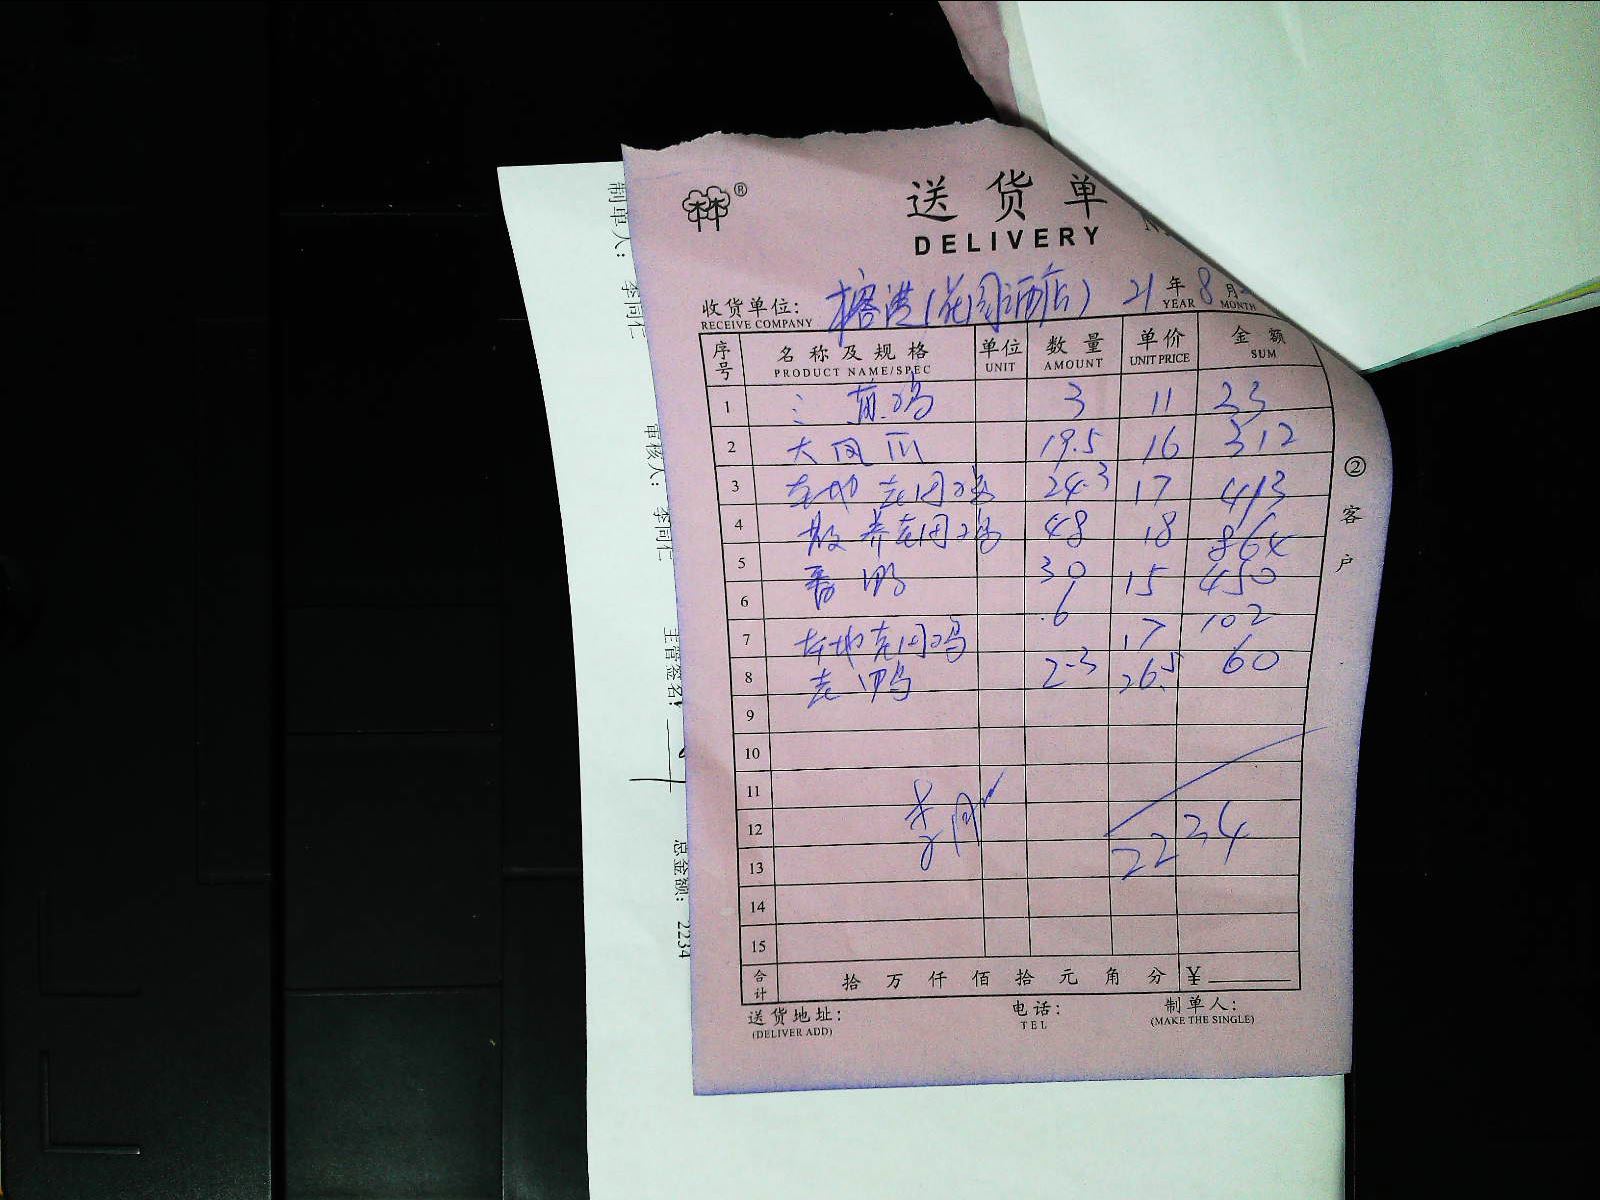 ®
送货单
DELIVERY
收货单位: 榕港(花园酒店) 21 年 8 月
RECEIVE COMPANY YEAR MONTH
序号 名称及规格 单位 数量 单价 金额
PRODUCT NAME/SPEC UNIT AMOUNT UNIT PRICE SUM
1 三黄鸡 3 11 33
2 大凤爪 19.5 16 312
3 本地老阉鸡 24.3 17 413
4 散养老阉鸡 48 18 864
5 番鸭 30 15 450
6 6 102
7 本地老阉鸡 17
8 老鸭 2.3 26.5 60
9
10
11
12 2234
13
14
15
合计 拾 万 仟 佰 拾 元 角 分 ¥
送货地址: 电话: 制单人:
(DELIVER ADD) TEL (MAKE THE SINGLE)
② 客户
制单人: 李同仁
审核人: 李同仁
主管签名:
总金额: 2234